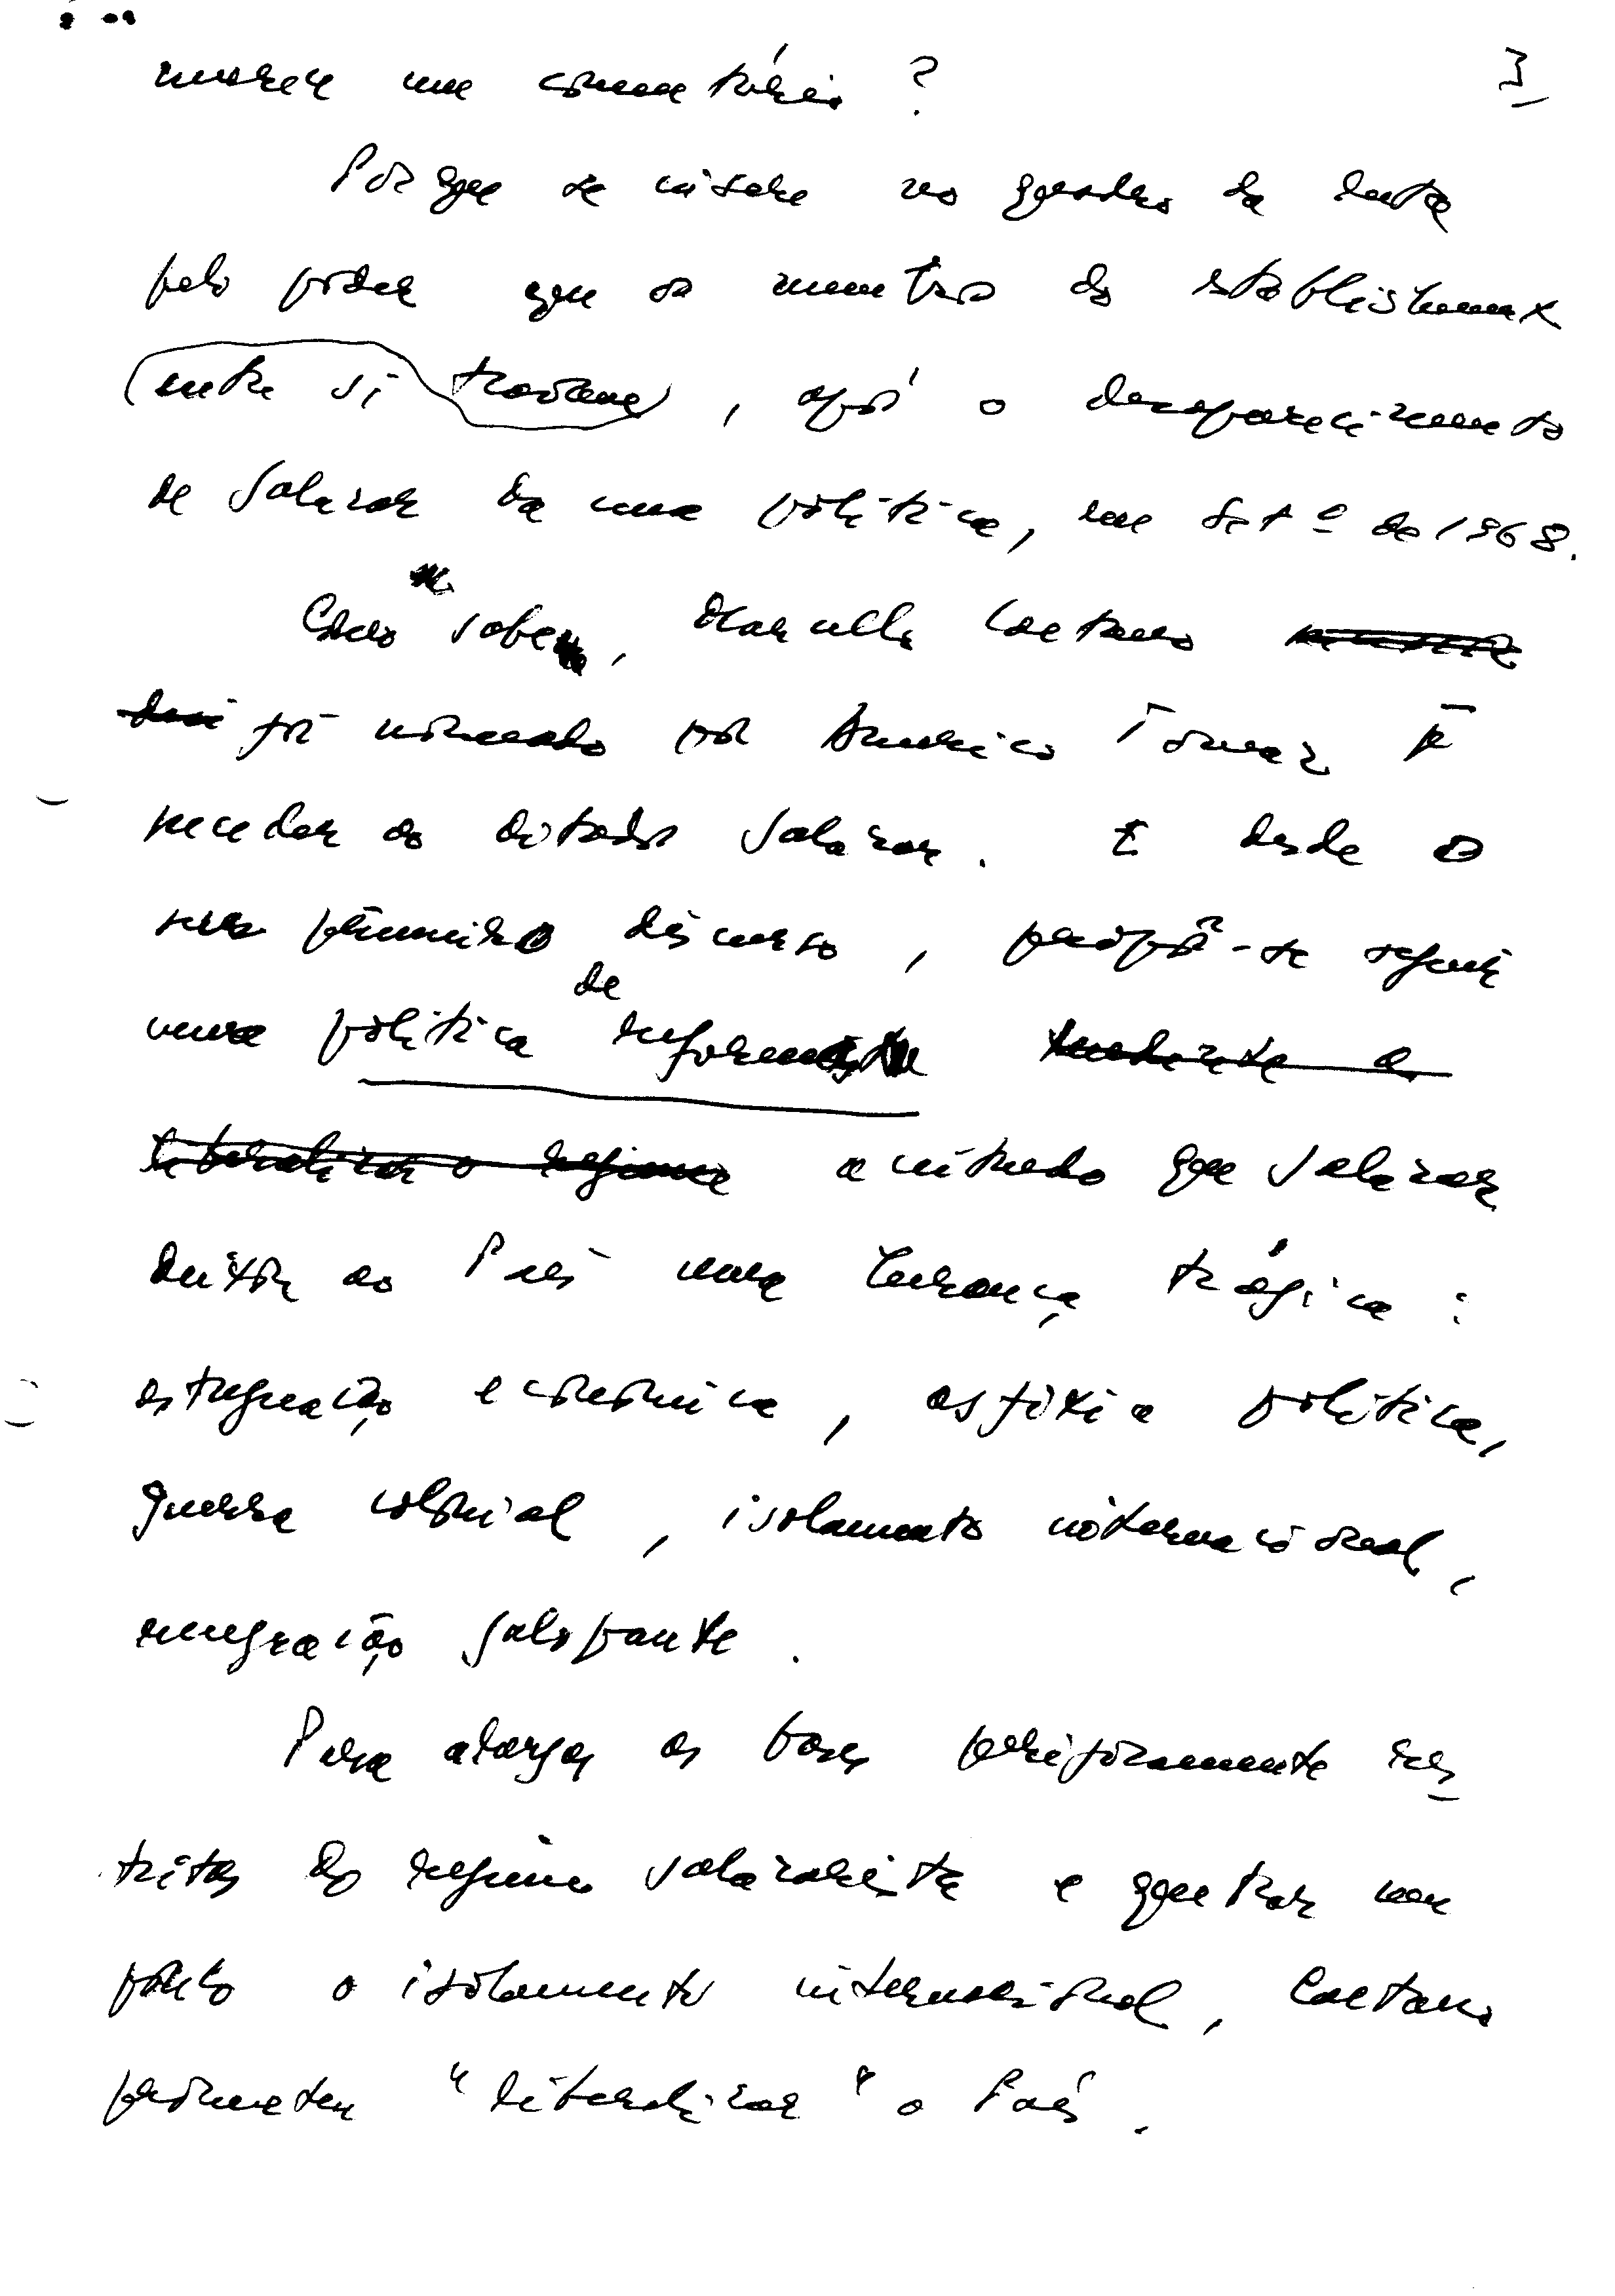 merece um comentário? 3
Porque se insere no quadro da luta
pelo poder que os membros do establishment
entre si travam, após o desaparecimento
de Salazar da cena política, em Setº de 1968.
Como se sabe, Marcello Caetano
foi nomeado por Américo Tomaz p.ª
suceder ao ditador Salazar. E desde o
seu primeiro discurso, propôs-se seguir
uma política de reformas
liberalizar o regime a intredo que Salazar
deixou ao País uma herança trágica:
estagnação económica, asfixia política,
guerra colonial, isolamento internacional,
emigração galopante.
Para alargar as bases perigosamente res-
tritas do regime salazarista e quebrar um
pouco o isolamento internacional, Caetano
prometeu "liberalizar" o País.